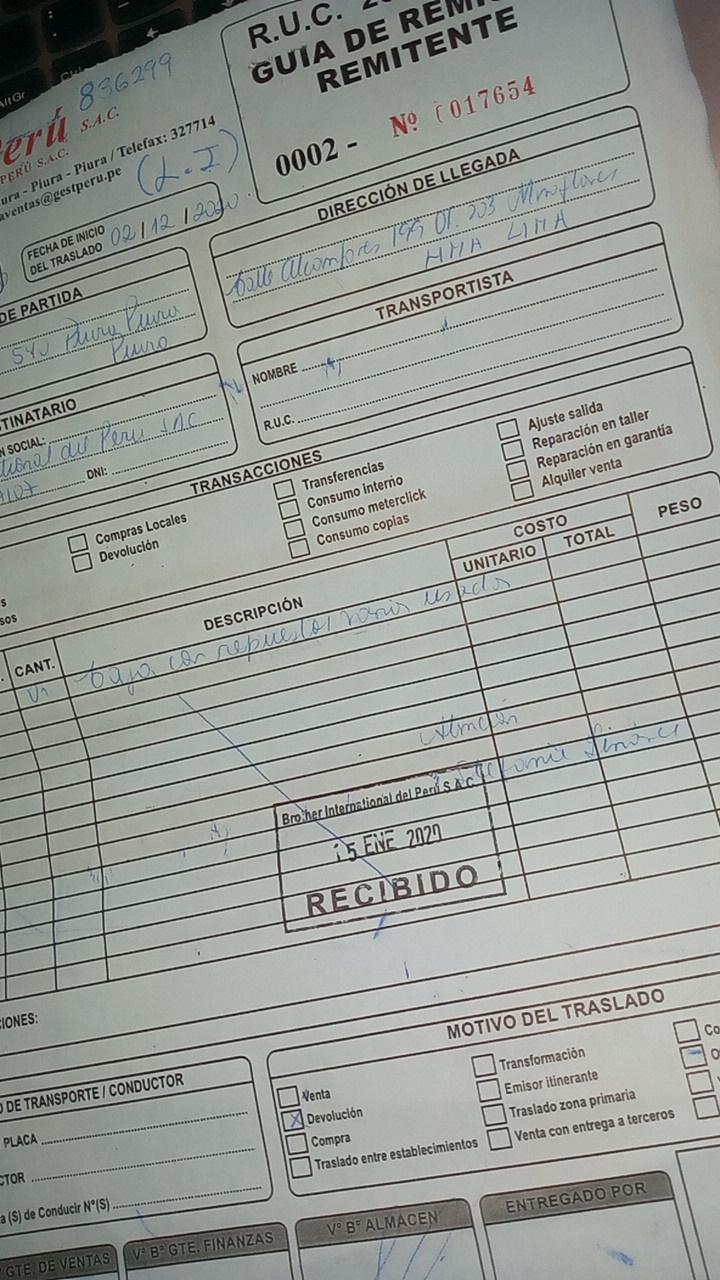 AltGr
R.U.C. 20
GUIA DE REMI
REMITENTE
0002 - Nº 017654
836299
erú S.A.C.
PERÚ S.A.C.
ura - Piura - Piura / Telefax: 327714
aventas@gestperu.pe
(L.I)
FECHA DE INICIO
DEL TRASLADO 02/12/2020
DIRECCIÓN DE LLEGADA
Calle 199 Of. 203 Miraflores
LIMA LIMA
DE PARTIDA
540 Piura Piura
Piura
TRANSPORTISTA
NOMBRE
R.U.C.
TINATARIO
N SOCIAL:
del Peru SAC
DNI:
TRANSACCIONES
Compras Locales
Devolución
Transferencias
Consumo Interno
Consumo meterclick
Consumo copias
Ajuste salida
Reparación en taller
Reparación en garantía
Alquiler venta
s
sos
CANT.
DESCRIPCIÓN
COSTO
UNITARIO
TOTAL
PESO
01 caja con repuestos varios usados
Atención
Brother International del Perú S.A.C.
15 ENE 2020
RECIBIDO
CIONES:
MOTIVO DEL TRASLADO
Venta
Devolución
Compra
Traslado entre establecimientos
Transformación
Emisor itinerante
Traslado zona primaria
Venta con entrega a terceros
Co
O
D DE TRANSPORTE / CONDUCTOR
PLACA
CTOR
a (S) de Conducir Nº(S)
GTE. DE VENTAS
Vº Bº GTE. FINANZAS
Vº Bº ALMACEN
ENTREGADO POR